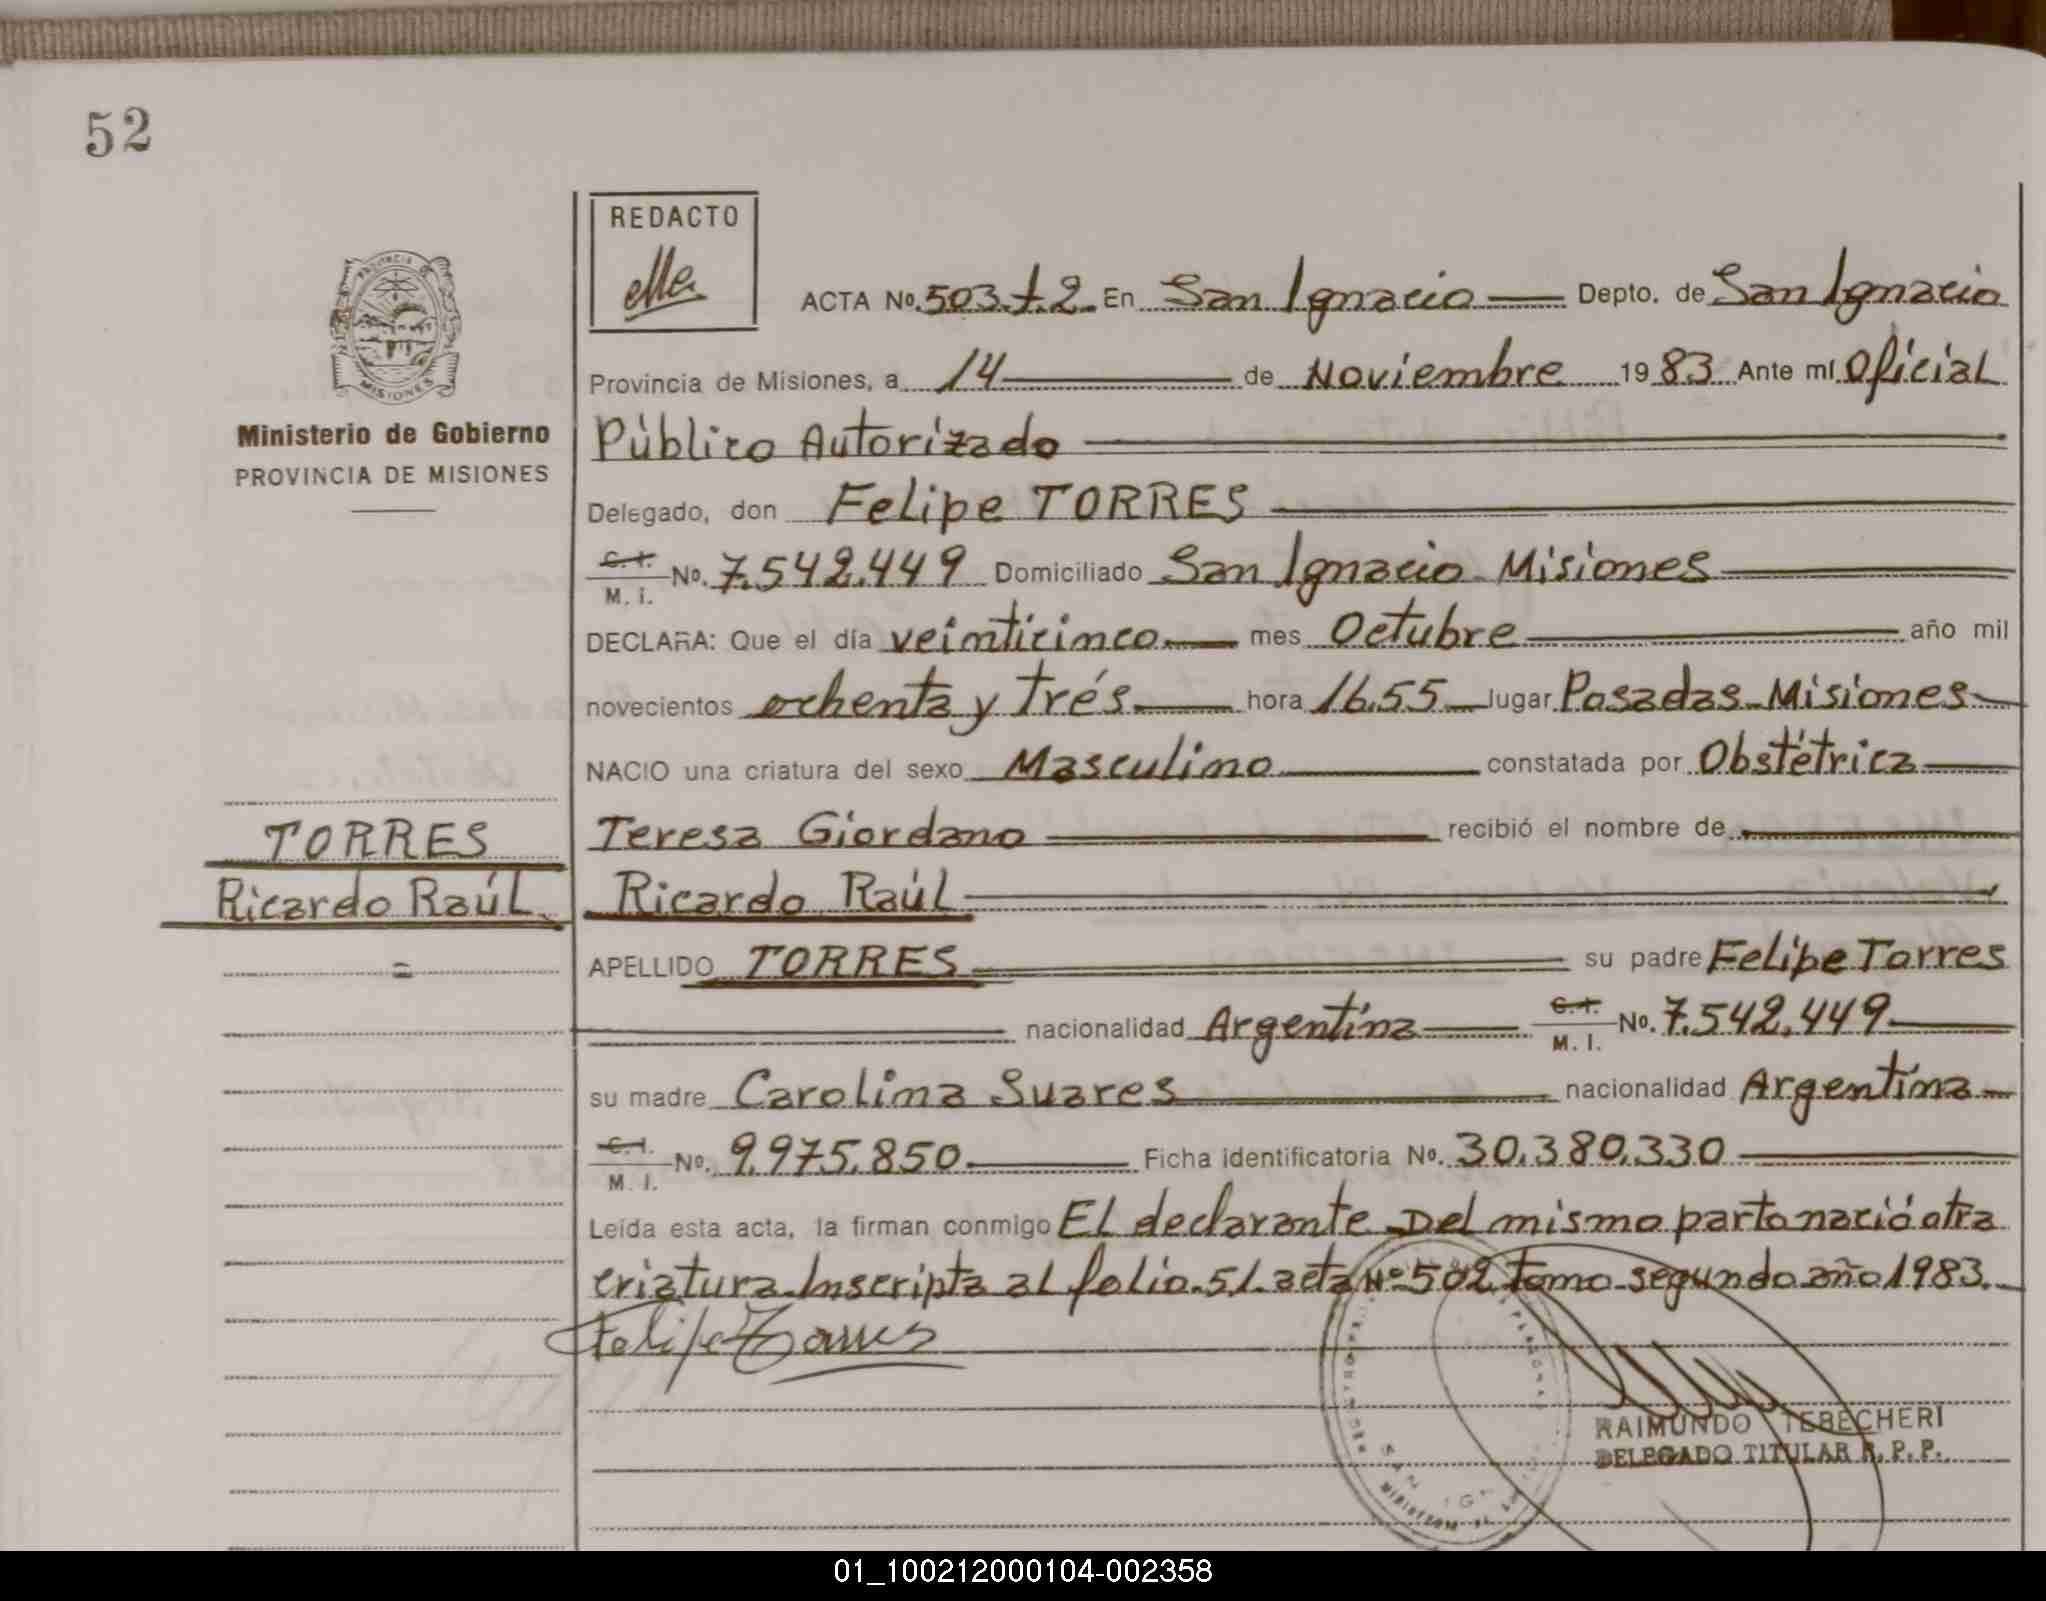 52
REDACTO
PROVINCIA DE
MISIONES
Ministerio de Gobierno
PROVINCIA DE MISIONES
ACTA No. 503.t.2. En San Ignacio Depto. de San Ignacio
Provincia de Misiones, a 14 de Noviembre 1983 Ante mí Oficial
Público Autorizado
Delegado, don Felipe TORRES
C. I. M. I. No. 7.542.449 Domiciliado San Ignacio Misiones
DECLARA: Que el día veinticinco mes Octubre año mil
novecientos ochenta y trés hora 16.55 lugar Posadas Misiones
NACIO una criatura del sexo Masculino constatada por Obstétrica
Teresa Giordano recibió el nombre de
Ricardo Raúl
APELLIDO TORRES su padre Felipe Torres
nacionalidad Argentina C. I. M. I. No. 7.542.449
su madre Carolina Suares nacionalidad Argentina
C. I. M. I. No. 9.975.850 Ficha identificatoria No. 30.380.330
Leída esta acta, la firman conmigo El declarante Del mismo parto nació otra
criatura Inscripta al folio 51 acta Nº 502 tomo segundo año 1983.
Felipe Torres
TORRES
Ricardo Raúl
RAIMUNDO TEBECHERI
DELEGADO TITULAR R. P. P.
01_100212000104-002358